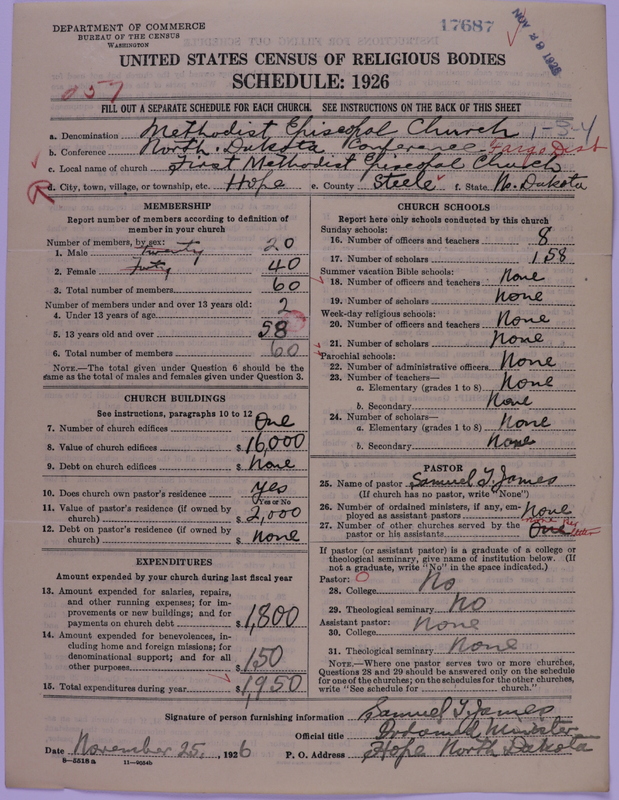 DEPARTMENT OF COMMERCE
BUREAU OF THE CENSUS
WASHINGTON
17687
NOV 29 1926
UNITED STATES CENSUS OF RELIGIOUS BODIES
SCHEDULE: 1926
057
FILL OUT A SEPARATE SCHEDULE FOR EACH CHURCH. SEE INSTRUCTIONS ON THE BACK OF THIS SHEET
a. Denomination Methodist Episcopal Church 1-3-4
b. Conference North Dakota Conference Fargo Dist
c. Local name of church First Methodist Episcopal Church
d. City, town, village, or township, etc. Hope e. County Steele f. State No. Dakota
MEMBERSHIP
Report number of members according to definition of member in your church
Number of members, by sex:
1. Male twenty 20
2. Female Forty 40
3. Total number of members 60
Number of members under and over 13 years old:
4. Under 13 years of age 2
5. 13 years old and over 58
6. Total number of members 60
NOTE.—The total given under Question 6 should be the same as the total of males and females given under Question 3.
CHURCH BUILDINGS
See instructions, paragraphs 10 to 12
7. Number of church edifices One
8. Value of church edifices $ 16,000
9. Debt on church edifices $ None
10. Does church own pastor's residence? Yes
Yes or No
11. Value of pastor's residence (if owned by church) $ 2,000
12. Debt on pastor's residence (if owned by church) $ None
EXPENDITURES
Amount expended by church during last fiscal year
13. Amount expended for salaries, repairs, and other running expenses; for improvements or new buildings; and for payments on church debt $ 1,800
14. Amount expended for benevolences, including home and foreign missions; for denominational support; and for all other purposes $ 150
15. Total expenditures during year $ 1,950
CHURCH SCHOOLS
Report here only schools conducted by this church
Sunday schools:
16. Number of officers and teachers 8
17. Number of scholars 158
Summer vacation Bible schools:
18. Number of officers and teachers None
19. Number of scholars None
Week-day religious schools:
20. Number of officers and teachers None
21. Number of scholars None
Parochial schools:
22. Number of administrative officers None
23. Number of teachers—
a. Elementary (grades 1 to 8) None
b. Secondary None
24. Number of scholars—
a. Elementary (grades 1 to 8) None
b. Secondary None
PASTOR
25. Name of pastor Samuel T. James
(If church has no pastor, write "None")
26. Number of ordained ministers, if any, employed as assistant pastors None
27. Number of other churches served by the pastor or his assistants One
If pastor (or assistant pastor) is a graduate of a college or theological seminary, give name of institution below. (If not a graduate, write "No" in the space indicated.)
Pastor: 0
28. College No
29. Theological seminary No
Assistant pastor:
30. College None
31. Theological seminary None
NOTE.—Where one pastor serves two or more churches, Questions 28 and 29 should be answered only on the schedule for one of the churches; on the schedules for the other churches, write "See schedule for church."
Signature of person furnishing information Samuel T. James
Official title Ordained Minister
Date November 25, 1926 P. O. Address Hope North Dakota
8-5518a 11-9054b